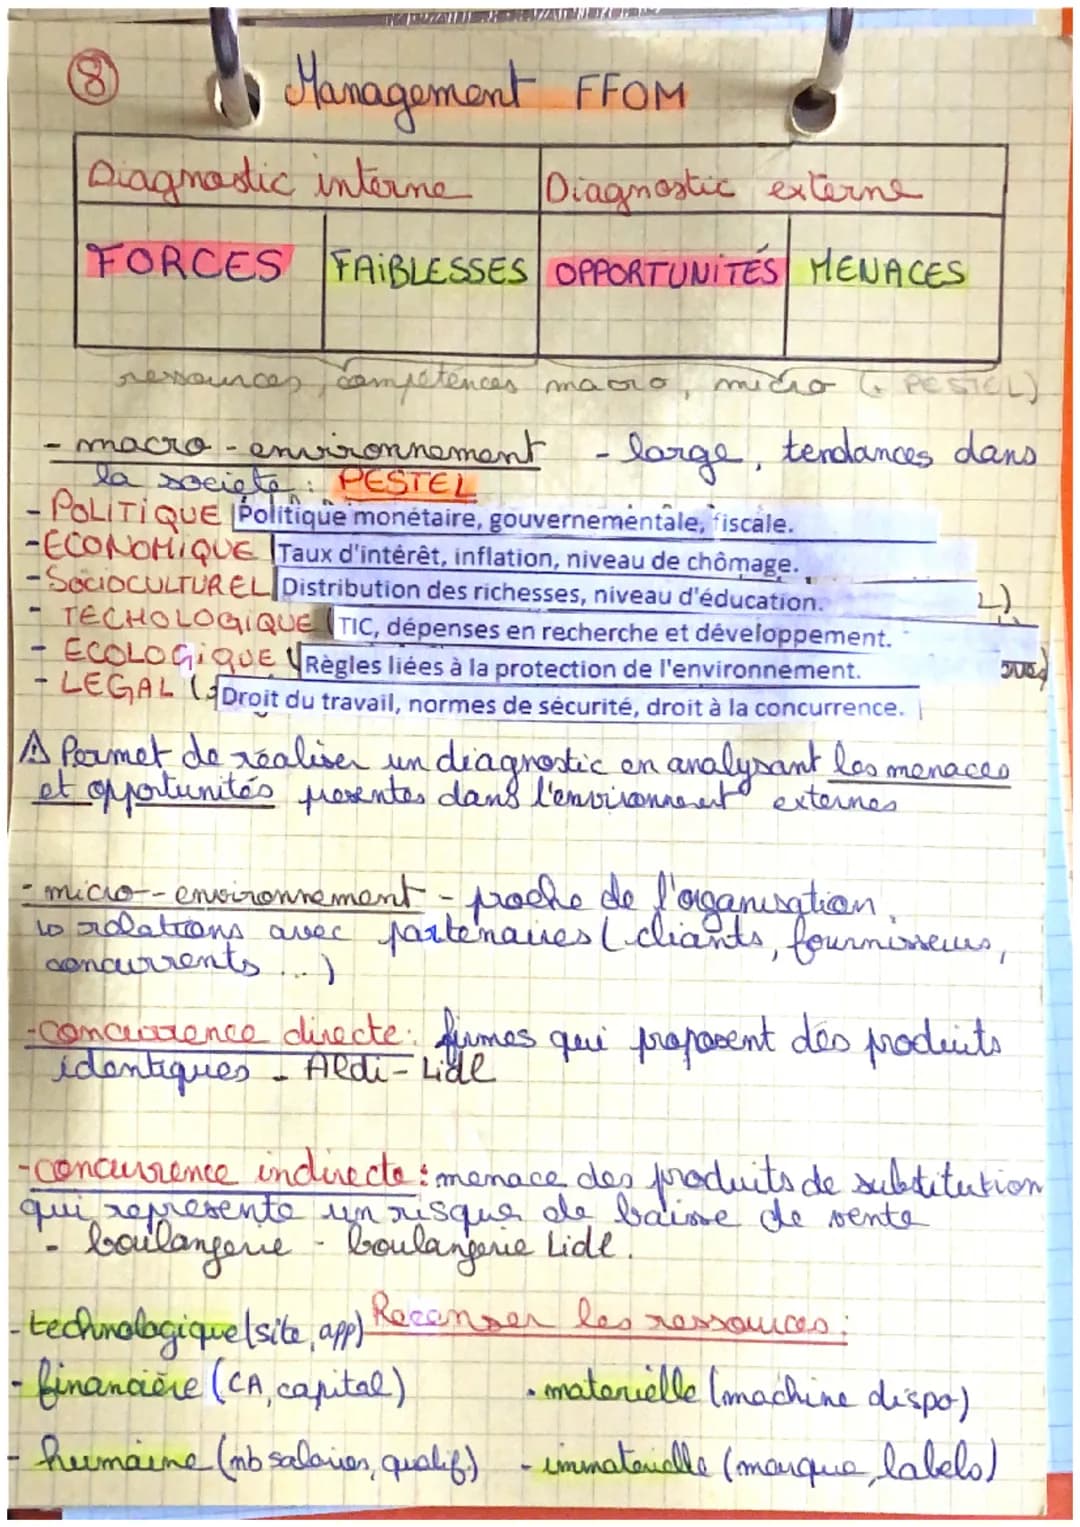 8
Management FFOM
Diagnostic interne Diagnostic externe
FORCES FAIBLESSES OPPORTUNITÉS MENACES
ressources, compétences macro, micro (+ PESTEL)
- macro-environnement - large, tendances dans
la société : PESTEL
- POLITIQUE Politique monétaire, gouvernementale, fiscale.
- ECONOMIQUE Taux d'intérêt, inflation, niveau de chômage.
- SOCIOCULTUREL Distribution des richesses, niveau d'éducation.
- TECHOLOGIQUE TIC, dépenses en recherche et développement.
- ECOLOGIQUE Règles liées à la protection de l'environnement.
- LEGAL ( Droit du travail, normes de sécurité, droit à la concurrence.
⚠ Permet de réaliser un diagnostic en analysant les menaces
et opportunités presentes dans l'environnement externes
- micro-environnement - proche de l'organisation.
relations avec partenaires (cliants, fournisseurs,
concurrents ...)
- concurrence directe : firmes qui proposent des produits
identiques - Aldi - Lidl
- concurrence indirecte : menace des produits de substitution
qui represente un risque de baisse de vente
- boulangerie - boulangerie Lidl.
Recenser les ressources :
- technologique (site, app)
- financière (CA, capital) - materielle (machine dispo)
- humaine (nb salaries, qualif.) - immaterielle (marque, labels)